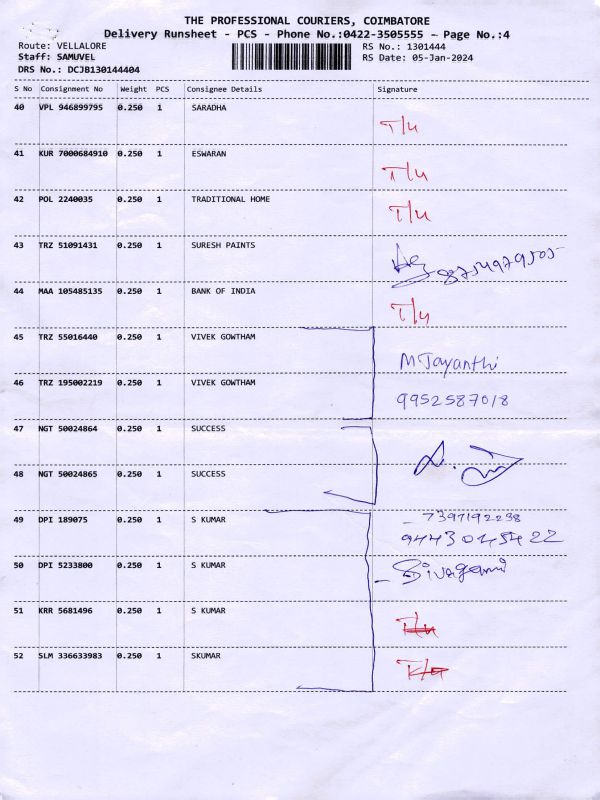 THE PROFESSIONAL COURIERS, COIMBATORE
Delivery Runsheet - PCS - Phone No.:0422-3505555 - Page No.:4
Route: VELLALORE
RS No.: 1301444
Staff: SAMUVEL
RS Date: 05-Jan-2024
DRS No.: DCJB130144404
S No Consignment No Weight PCS Consignee Details Signature
40 VPL 946899795 0.250 1 SARADHA
T/u
41 KUR 7000684910 0.250 1 ESWARAN
T/u
42 POL 2240035 0.250 1 TRADITIONAL HOME
T/u
43 TRZ 51091431 0.250 1 SURESH PAINTS
8754979505
44 MAA 105485135 0.250 1 BANK OF INDIA
T/u
45 TRZ 55016440 0.250 1 VIVEK GOWTHAM
M Jayanthi
46 TRZ 195002219 0.250 1 VIVEK GOWTHAM
9952587018
47 NGT 50024864 0.250 1 SUCCESS
48 NGT 50024865 0.250 1 SUCCESS
49 DPI 189075 0.250 1 S KUMAR
7397192238
9443045422
50 DPI 5233800 0.250 1 S KUMAR
Sivagami
51 KRR 5681496 0.250 1 S KUMAR
T/u
52 SLM 336633983 0.250 1 SKUMAR